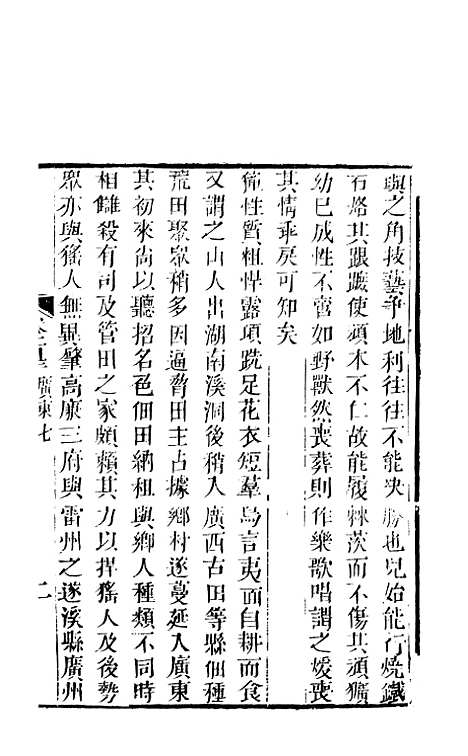 與之角技藝爭地利往往不能決勝也兒始能行燒鐵
石烙其跟蹠使頑木不仁故能履棘茨而不傷其頑獷
幼已成性不啻如野獸然喪葬則作樂歌唱謂之煖喪
其情乖戾可知矣
獞性質粗悍露頂跣足花衣短裙鳥言夷面自耕而食
又謂之山人出湖南溪洞後稍入廣西古田等縣佃種
荒田聚眾稍多因逼脅田主占據鄉村遂蔓延入廣東
其初來尚以聽招名色佃田納租與鄉人種類不同時
相讎殺有司及管田之家頗賴其力以捍猺人及後勢
眾亦與猺人無異肇高廉三府與雷州之遂溪縣廣州
廣東七
二